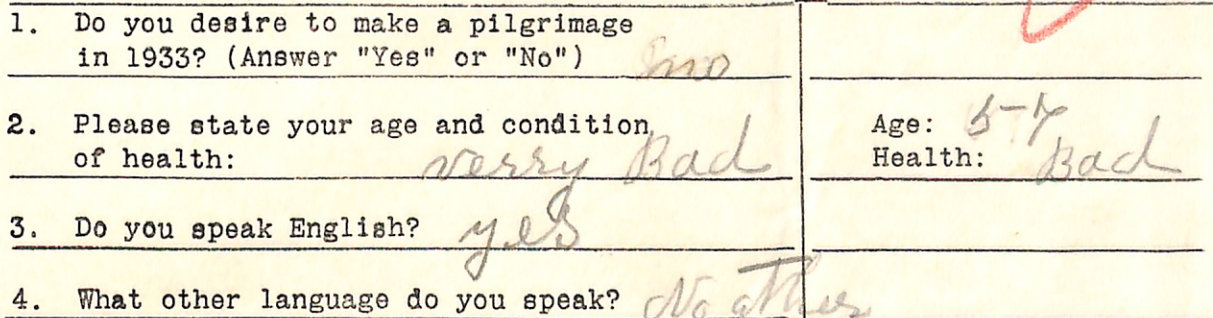 1. Do you desire to make a pilgrimage
in 1933? (Answer "Yes" or "No") no
2. Please state your age and condition
of health: verry Bad
Age: 57
Health: Bad
3. Do you speak English? yes
4. What other language do you speak? No other